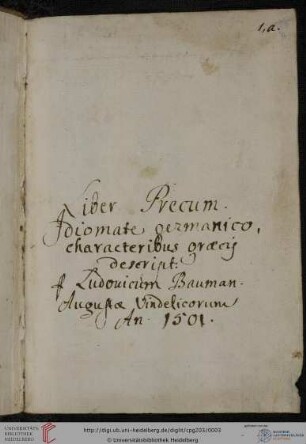 1,a.
Liber Precum.
Idiomate germanico,
characteribus græcis
descript:
p Ludovicum Bauman.
Augustæ Vindelicorum
An. 1501.
UNIVERSITÄTS-
BIBLIOTHEK
HEIDELBERG
http://digi.ub.uni-heidelberg.de/diglit/cpg203/0003
© Universitätsbibliothek Heidelberg